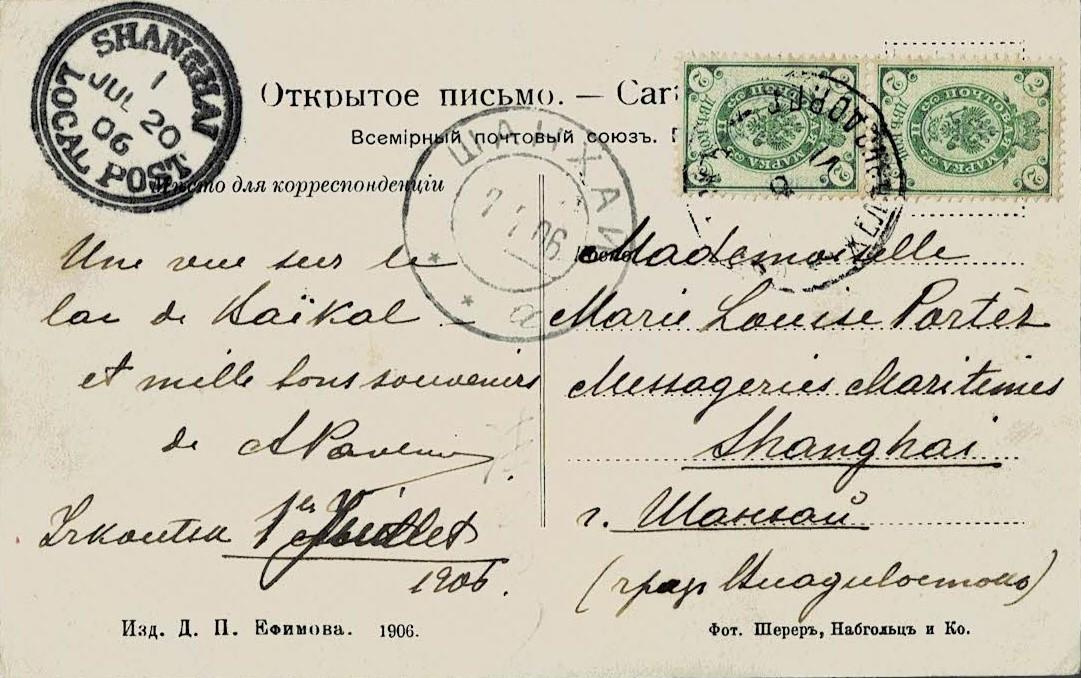 SHANGHAI
1
JUL 20
06
LOCAL POST
Открытое письмо. — Cart
Всемірный почтовый союзъ.
Мѣсто для корреспонденціи
ШАНХАЙ
06
2 2
2 2
Une vue sur le
lac de Baïkal —
et mille bons souvenirs
de
Irkoutsk 1er Juillet
1906.
Mademoiselle
Marie Louise Portér
Messageries Maritimes
Shanghai
г. Шанхай
(чрез Владивостокъ)
Изд. Д. П. Ефимова. 1906.
Фот. Шереръ, Набгольцъ и Ко.